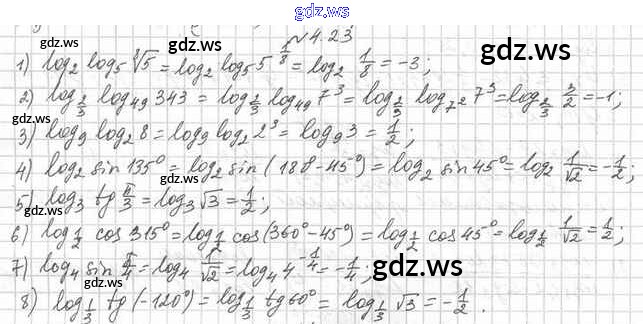 gdz.ws
№4.23
gdz.ws gdz.ws
1) log₂ log₅ ⁸√5 = log₂ log₅ 5^(1/8) = log₂ 1/8 = -3;
2) log_(2/3) log₄₉ 343 = log_(2/3) log₄₉ 7³ = log_(2/3) log_(7²) 7³ = log_(2/3) 3/2 = -1;
3) log₉ log₂ 8 = log₉ log₂ 2³ = log₉ 3 = 1/2;
gdz.ws gdz.ws
4) log₂ sin 135° = log₂ sin (180-45°) = log₂ sin 45° = log₂ 1/√2 = -1/2;
5) log₃ tg π/3 = log₃ √3 = 1/2;
gdz.ws gdz.ws
6) log_(1/2) cos 315° = log_(1/2) cos (360°-45°) = log_(1/2) cos 45° = log_(1/2) 1/√2 = 1/2;
7) log₄ sin π/4 = log₄ 1/√2 = log₄ 4^(-1/4) = -1/4;
gdz.ws gdz.ws
8) log_(1/3) tg (-120°) = log_(1/3) tg 60° = log_(1/3) √3 = -1/2.
gdz.ws